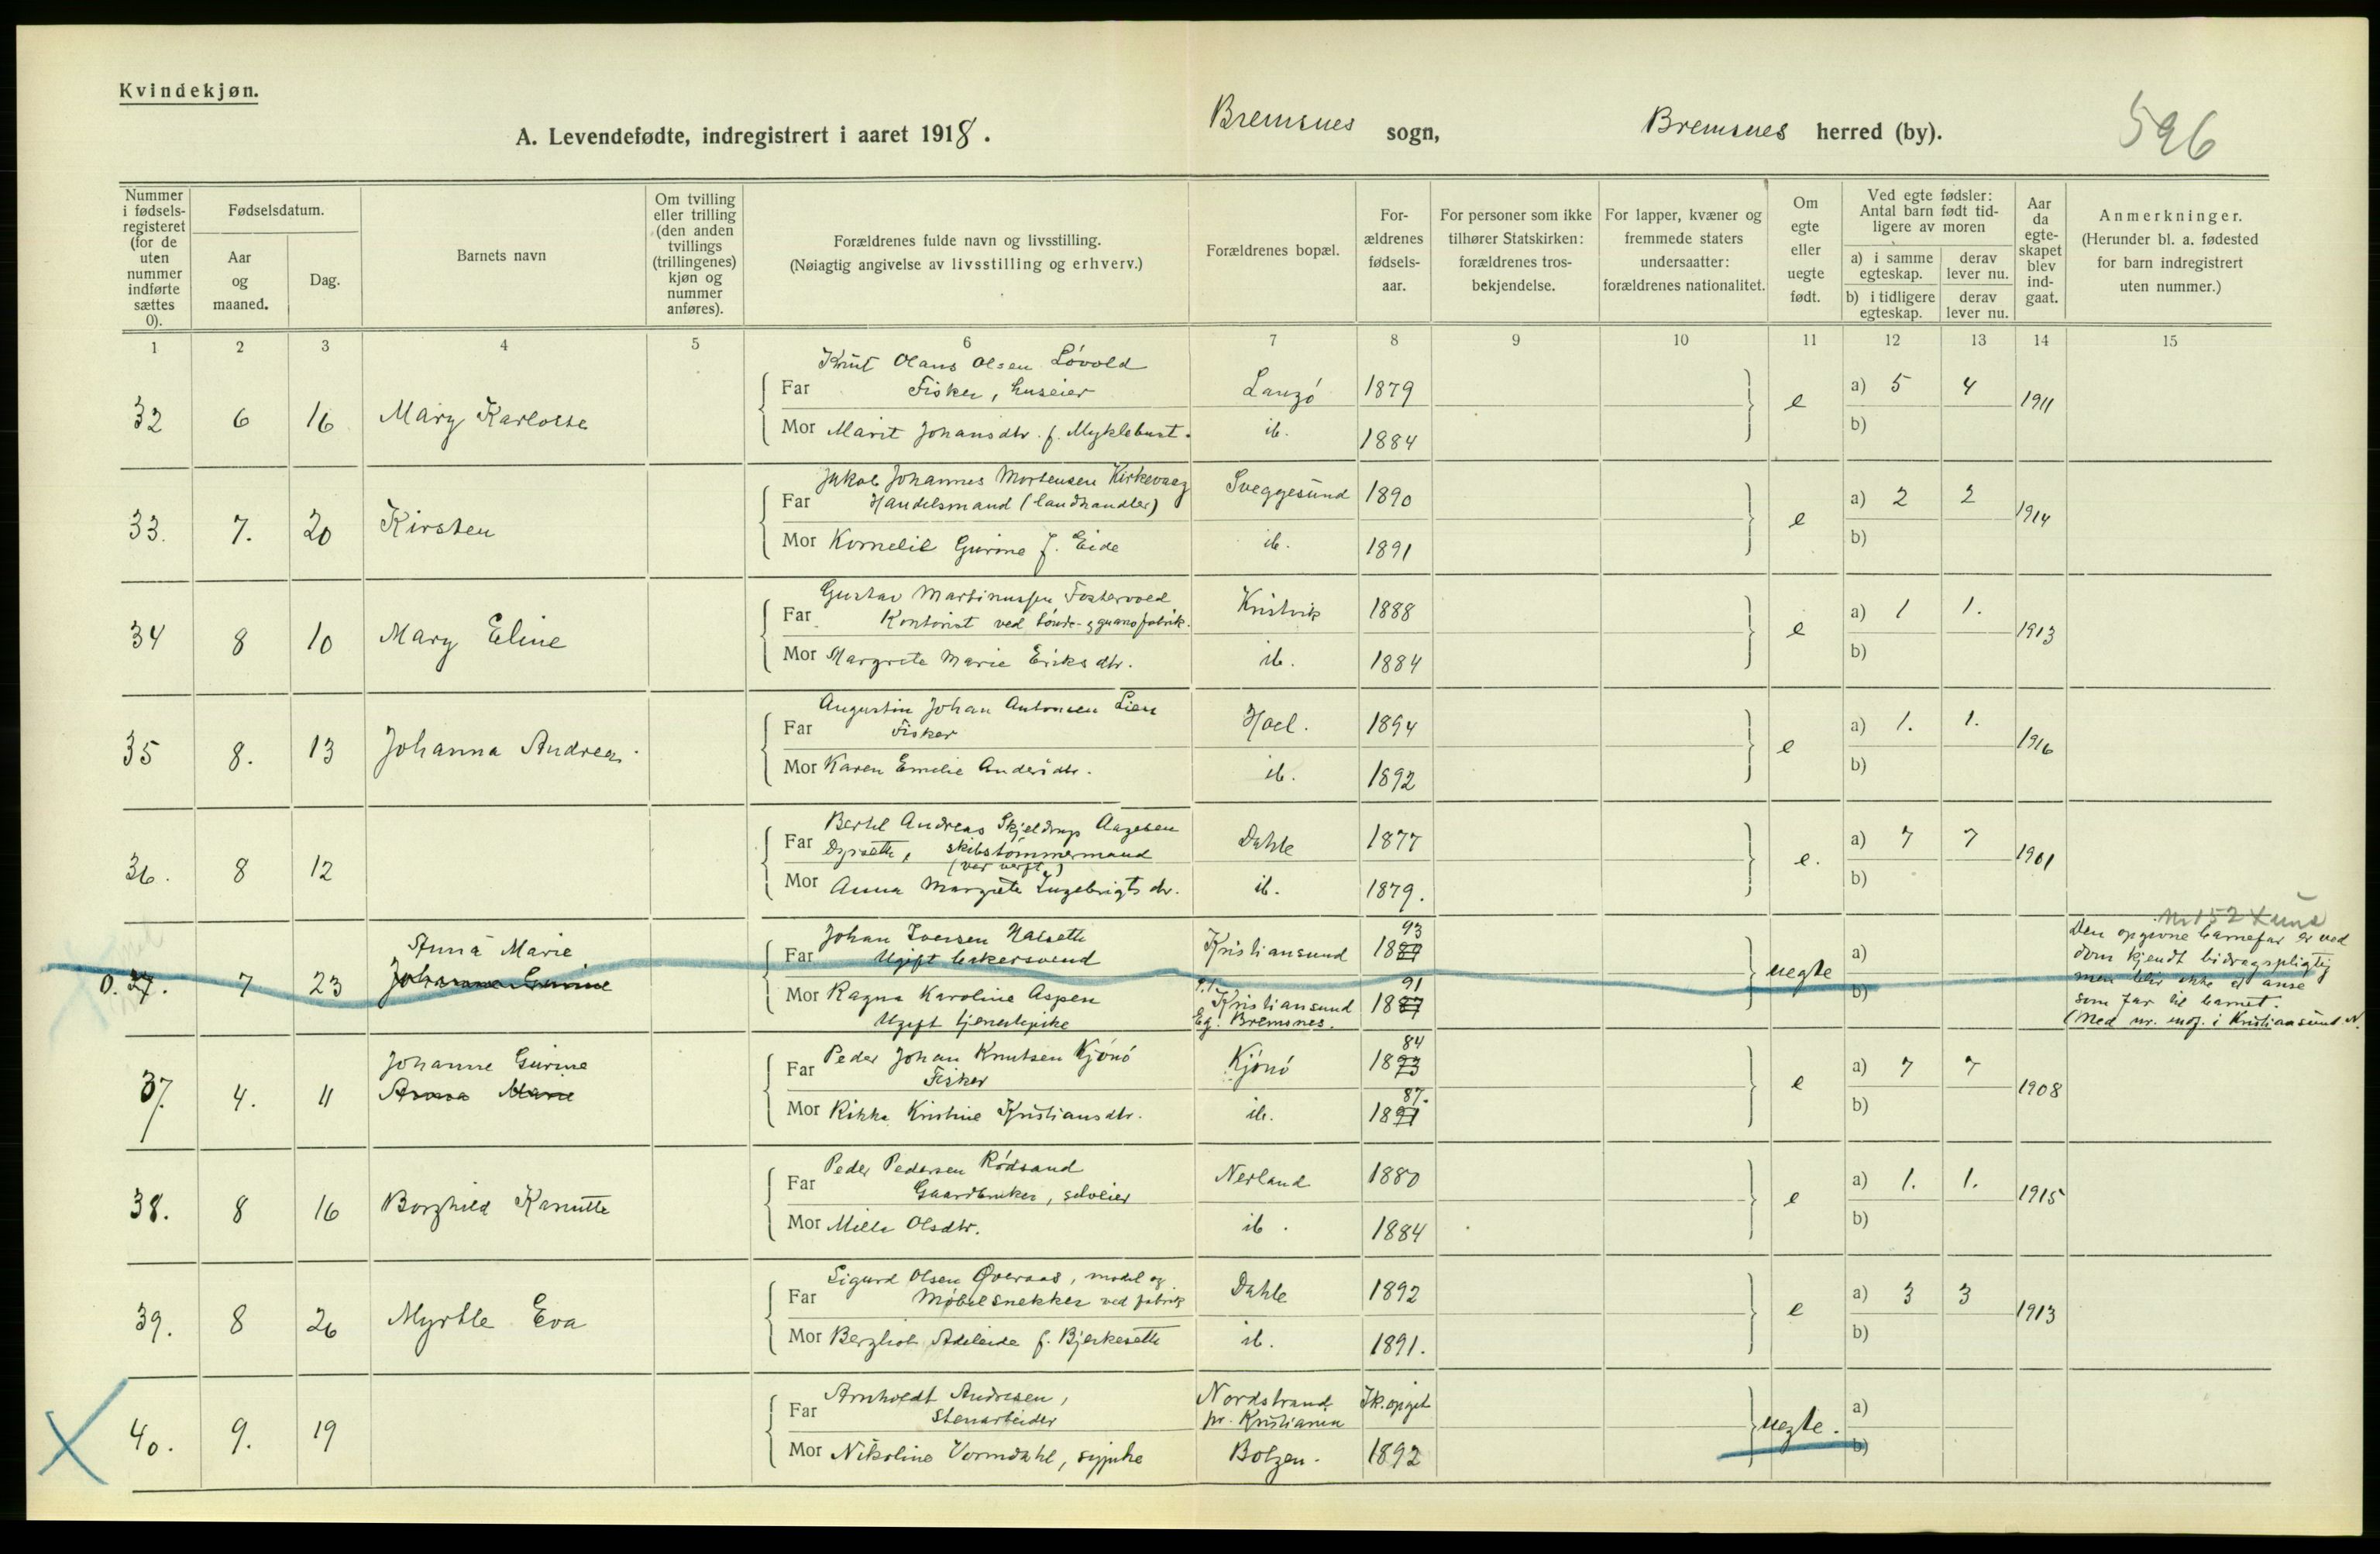 Kvindekjøn.
A. Levendefødte, indregistrert i aaret 1918. Bremsnes sogn, Bremsnes herred (by). 596
Nummer i fødsels-registeret (for de uten nummer indførte sættes 0).
Fødselsdatum.
Aar og maaned.
Dag.
Barnets navn
Om tvilling eller trilling (den anden tvillings (trillingenes) kjøn og nummer anføres).
Forældrenes fulde navn og livsstilling.
(Nøiagtig angivelse av livsstilling og erhverv.)
Forældrenes bopæl.
For-ældrenes fødsels-aar.
For personer som ikke tilhører Statskirken: forældrenes tros-bekjendelse.
For lapper, kvæner og fremmede staters undersaatter: forældrenes nationalitet.
Om egte eller uegte født.
Ved egte fødsler: Antal barn født tid-ligere av moren
a) i samme egteskap. derav lever nu.
b) i tidligere egteskap. derav lever nu.
Aar da egte-skapet blev ind-gaat.
Anmerkninger.
(Herunder bl. a. fødested for barn indregistrert uten nummer.)
1 2 3 4 5 6 7 8 9 10 11 12 13 14 15
Knut Olaus Olsen Løvold
32 6 16 Mary Karlotte Far Fisker, huseier Langø 1879 e a) 5 4 1911
Mor Marit Johansdtr. f. Myklebust. ib. 1884 b)
Jakob Johannes Mortensen Kirkevaag
33. 7. 20 Kirsten Far Handelsmand (landhandler) Sveggesund 1890 e a) 2 2 1914
Mor Kornelie Gurine f. Eide ib. 1891 b)
Gustav Martinussen Fostervold
34 8 10 Mary Eline Far Kontorist ved tønde- & guanofabrik. Kristvik 1888 e a) 1 1. 1913
Mor Margrete Marie Eriksdtr. ib. 1884 b)
Augustin Johan Antonsen Lien
35 8. 13 Johanna Andrea. Far Fisker Hoel. 1894 e a) 1. 1. 1916
Mor Karen Emelie Andersdtr. ib. 1892 b)
Bertel Andreas Skjeldrup Aagesen
36. 8 12 Far Dyrsæth, skibstømmermand Dahle 1877 e. a) 7 7 1901
(ved verft.)
Mor Anna Margrete Ingebrigtsdtr. ib. 1879. b)
Nr 152
Johan Iversen Halseth 93
0. 37. 7 23 Anna Marie Johanne Gurine Far Ugift bakersvend Kristiansund 1889 uegte a)
Mor Ragna Karoline Aspen p.t. Kristiansund 91 1887 b)
Ugift tjenestepike Eg. Bremsnes.
Den opgivne barnefar er ved
dom kjendt bidragspligtig
men blir ikke at anse
som far til barnet.
(Med nr. indf. i Kristiansund N.
Peder Johan Knutsen Kjønø 84
37. 4. 11 Johanne Gurine Anna Marie Far Fisker Kjønø 1893 e a) 7 7 1908
Mor Rikka Kristine Kristiansdtr. ib. 87. 1891 b)
Peder Pedersen Rødsand
38. 8 16 Borghild Kanutte Far Gaardbruker, selveier Nerland 1880 e a) 1. 1. 1915
Mor Milla Olsdtr. ib. 1884 b)
Sigurd Olsen Øveraas, model og
39. 8 26 Myrtle Eva Far Møbelsnekker ved fabrik Dahle 1892 e a) 3 3 1913
Mor Bergliot Adeleide f. Bjerkesæth ib. 1891. b)
Arnholdt Andresen,
40. 9. 19 Far Stenarbeider Nordstrand pr. Kristiania Ik. opgit uegte. a)
Mor Nikoline Vormdahl, sypike Bolgen. 1892 b)